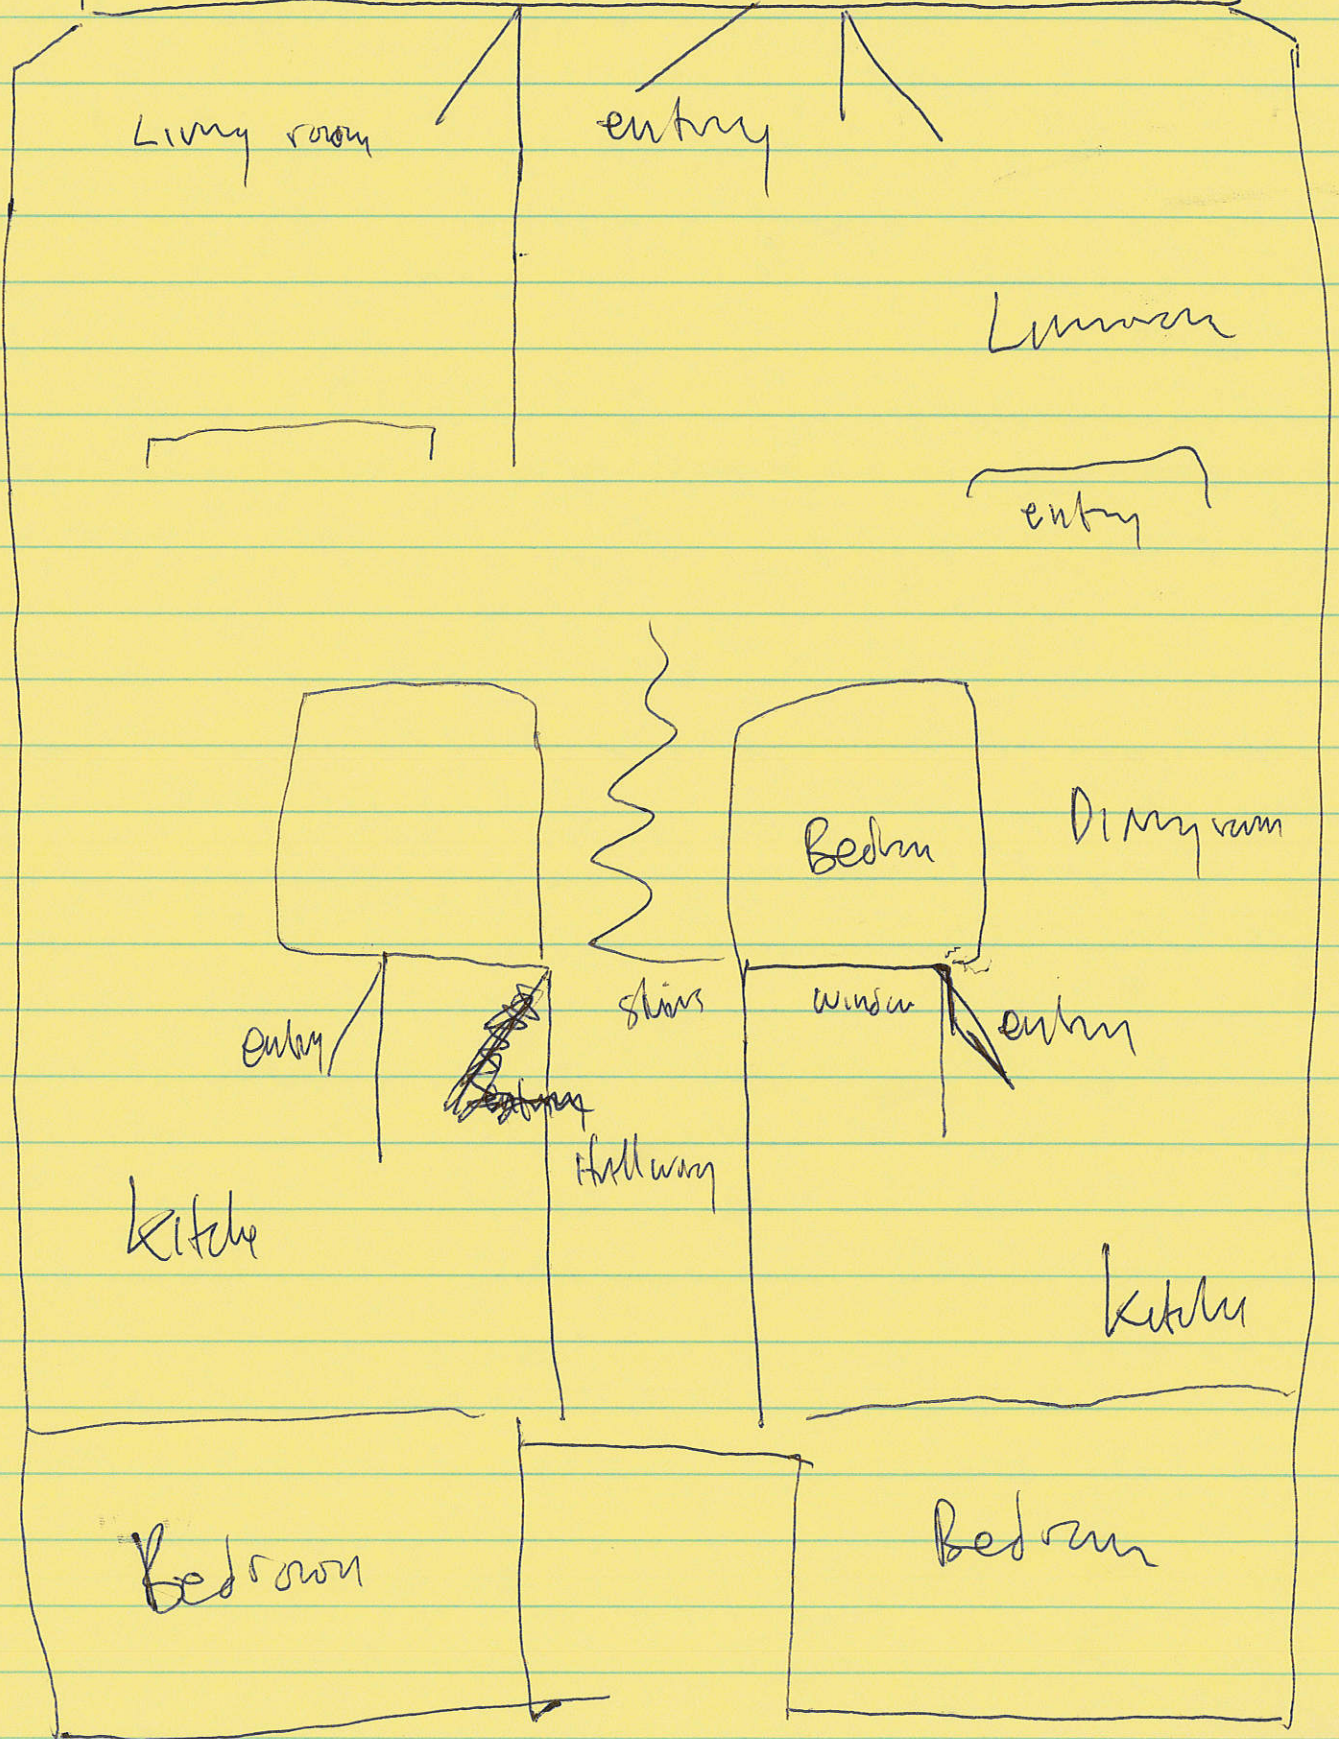 Living room
entry
Livroom
entry
Bedrm
Dining room
stairs
window
entry
entry
Hallway
Kitche
Kitche
Bedroom
Bedroom